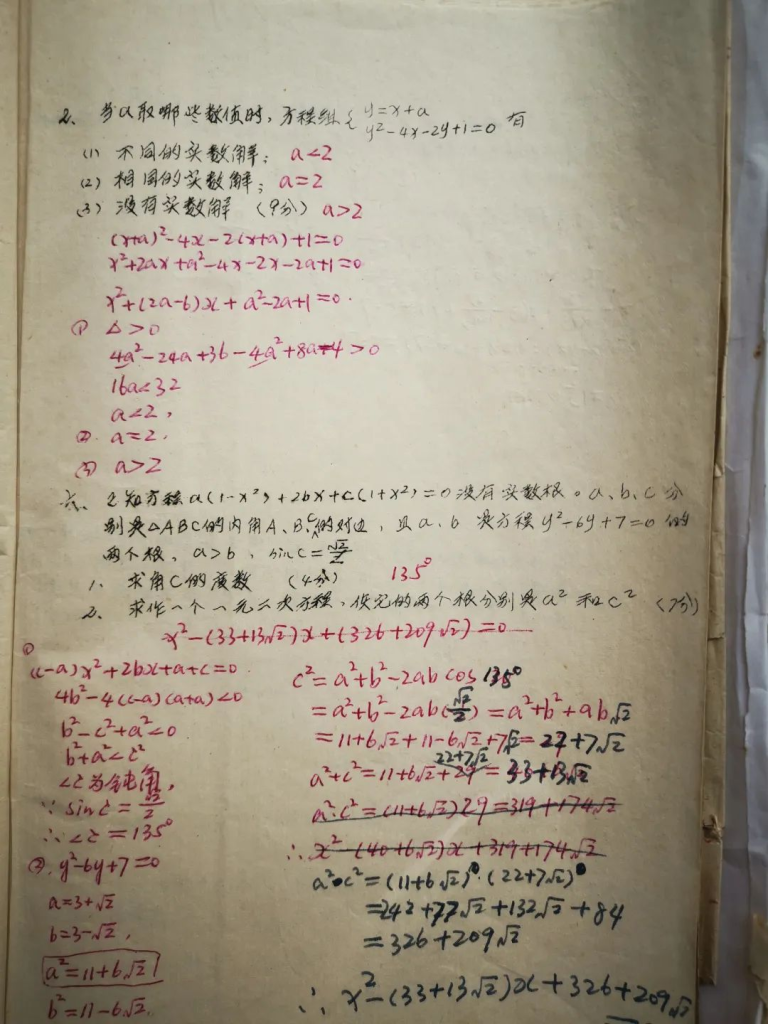 2、当a取哪些数值时，方程组{y=x+a
y²-4x-2y+1=0 有
(1) 不同的实数解；a<2
(2) 相同的实数解；a=2
(3) 没有实数解 (9分) a>2
(x+a)²-4x-2(x+a)+1=0
x²+2ax+a²-4x-2x-2a+1=0
x²+(2a-6)x+a²-2a+1=0.
① △>0
4a²-24a+36-4a²+8a-4>0
16a<32
a<2,
② a=2.
③ a>2
六、已知方程a(1-x²)+2bx+c(1+x²)=0没有实数根。a、b、c分
别是△ABC的内角A、B、C的对边，且a、b是方程y²-6y+7=0的
两个根、a>b，sinC=√2/2
1、求角C的度数 (4分) 135°
2、求作一个一元二次方程，使它的两个根分别是a²和c² (7分)
x²-(33+13√2)x+(326+209√2)=0
①
(c-a)x²+2bx+a+c=0
4b²-4(c-a)(a+a)<0
b²-c²+a²<0
b²+a²<c²
∠C为钝角,
∵sinC=√2/2
∴∠C=135°
②. y²-6y+7=0
a=3+√2
b=3-√2,
a²=11+6√2
b²=11-6√2.
c²=a²+b²-2ab cos 135°
=a²+b²-2ab(√2/2)=a²+b²+ab√2
=11+6√2+11-6√2+7√2=22+7√2
22+7√2
a²+c²=11+6√2+29=33+13√2
a²·c²=(11+6√2)29=319+174√2
∴x²-(40+6√2)x+319+174√2
a²·c²=(11+6√2)·(22+7√2)
=242+77√2+132√2+84
=326+209√2
∴x²-(33+13√2)x+326+209√2